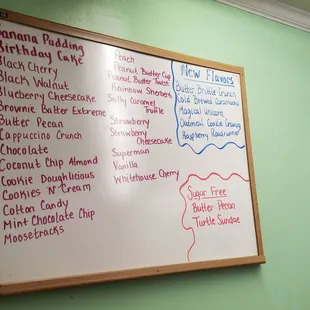 Banana Pudding
Birthday Cake
Black Cherry
Black Walnut
Blueberry Cheesecake
Brownie Batter Extreme
Butter Pecan
Cappuccino Crunch
Chocolate
Coconut Chip Almond
Cookie Doughlicious
Cookies N Cream
Cotton Candy
Mint Chocolate Chip
Moosetracks
Peach
Peanut Butter Cup
Peanut Butter Twist
Rainbow Sherbert
Salty Caramel
Truffle
Strawberry
Strawberry
Cheesecake
Superman
Vanilla
Whitehouse Cherry
New Flavors
Butter Brittle Crunch
Cold Brewed
Magical Unicorn
Oatmeal Cookie
Raspberry Roadrunner
Sugar Free
Butter Pecan
Turtle Sundae